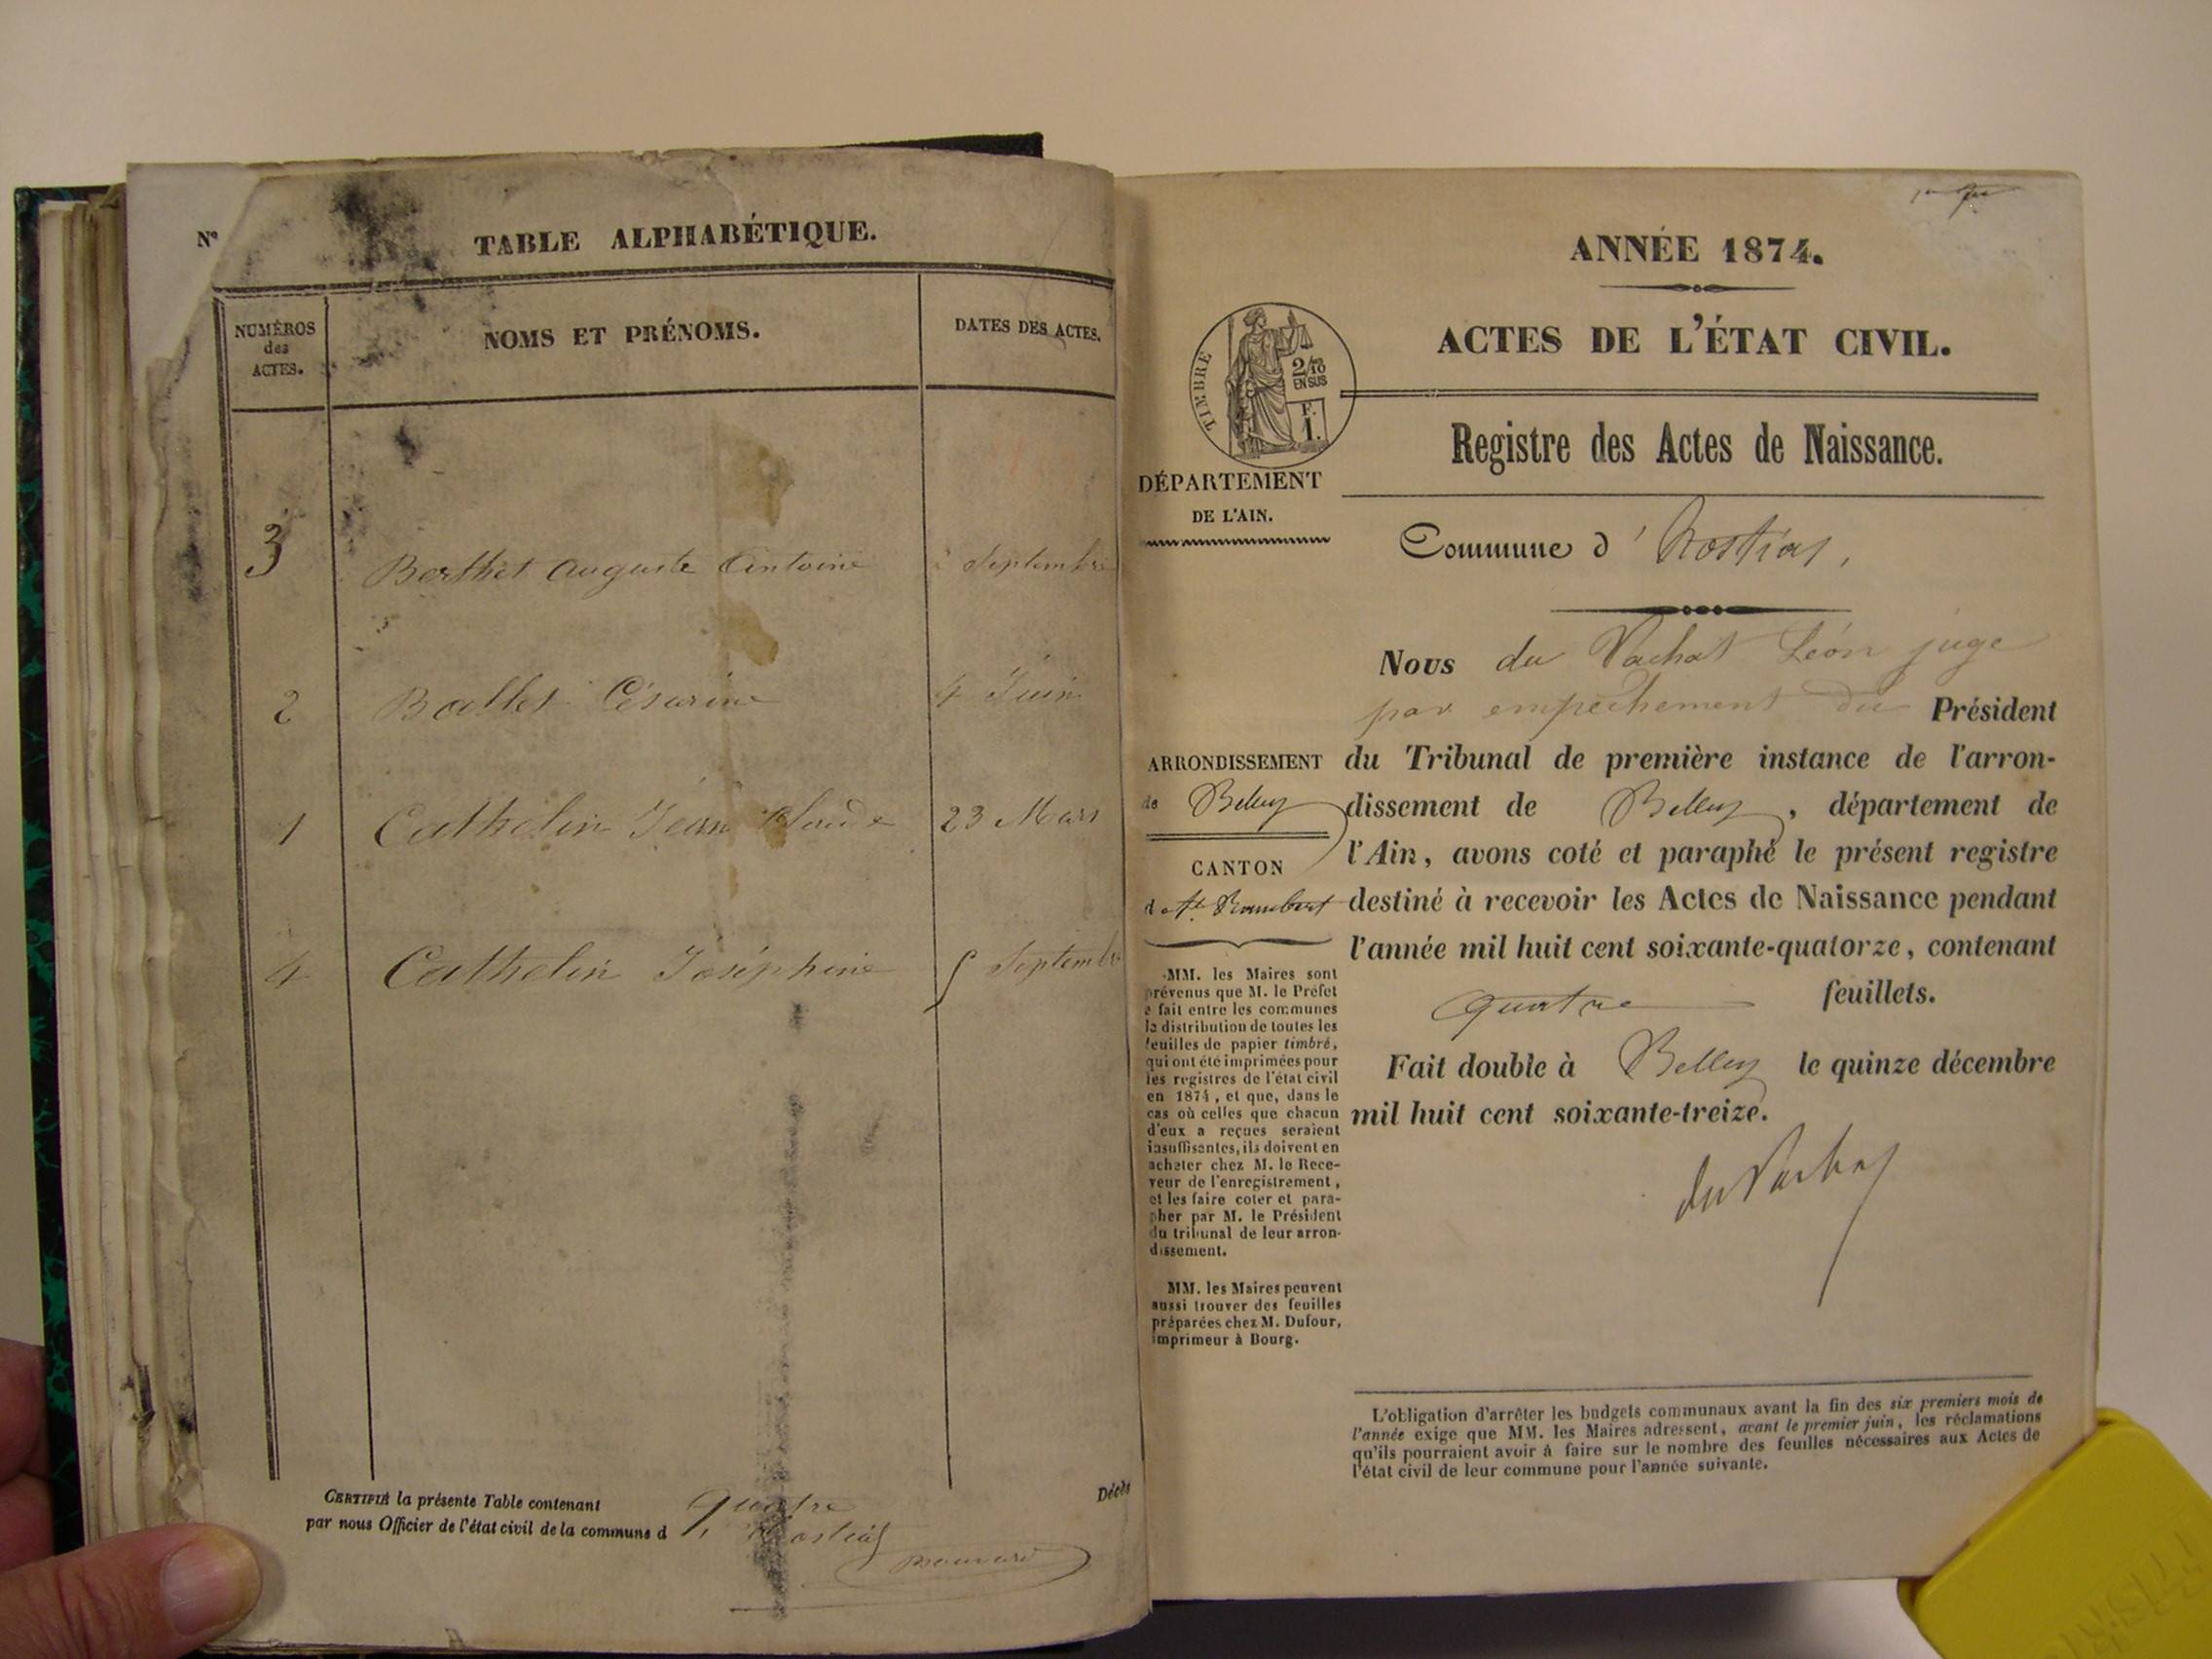 N°
TABLE ALPHABÉTIQUE.
NUMÉROS
des
ACTES.
NOMS ET PRÉNOMS.
DATES DES ACTES.
3 Berthet Auguste Antoine Septembre
2 Ballet Césarine 4 Juin
1 Cathelin Jean Claude 23 Mars
4 Cathelin Joséphine 5 Septembre
CERTIFIÉ la présente Table contenant quatre
par nous Officier de l'état civil de la commune d'Hostias
Décès
ANNÉE 1874.
ACTES DE L'ÉTAT CIVIL.
TIMBRE
2/10
EN SUS
F.
1.
DÉPARTEMENT
DE L'AIN.
Registre des Actes de Naissance.
Commune d'Hostias,
Nous du Vachat Léon juge
par empêchement du Président
du Tribunal de première instance de l'arron-
dissement de Belley, département de
l'Ain, avons coté et paraphé le présent registre
destiné à recevoir les Actes de Naissance pendant
l'année mil huit cent soixante-quatorze, contenant
quatre feuillets.
Fait double à Belley le quinze décembre
mil huit cent soixante-treize.
du Vachat
ARRONDISSEMENT
de Belley
CANTON
de St Rambert
MM. les Maires sont
prévenus que M. le Préfet
a fait entre les communes
la distribution de toutes les
feuilles de papier timbré,
qui ont été imprimées pour
les registres de l'état civil
en 1874, et que, dans le
cas où celles que chacun
d'eux a reçues seraient
insuffisantes, ils doivent en
acheter chez M. le Rece-
veur de l'enregistrement,
et les faire coter et para-
pher par M. le Président
du tribunal de leur arron-
dissement.
MM. les Maires peuvent
aussi trouver des feuilles
préparées chez M. Dufour,
imprimeur à Bourg.
L'obligation d'arrêter les budgets communaux avant la fin des six premiers mois de
l'année exige que MM. les Maires adressent, avant le premier juin, les réclamations
qu'ils pourraient avoir à faire sur le nombre des feuilles nécessaires aux Actes de
l'état civil de leur commune pour l'année suivante.